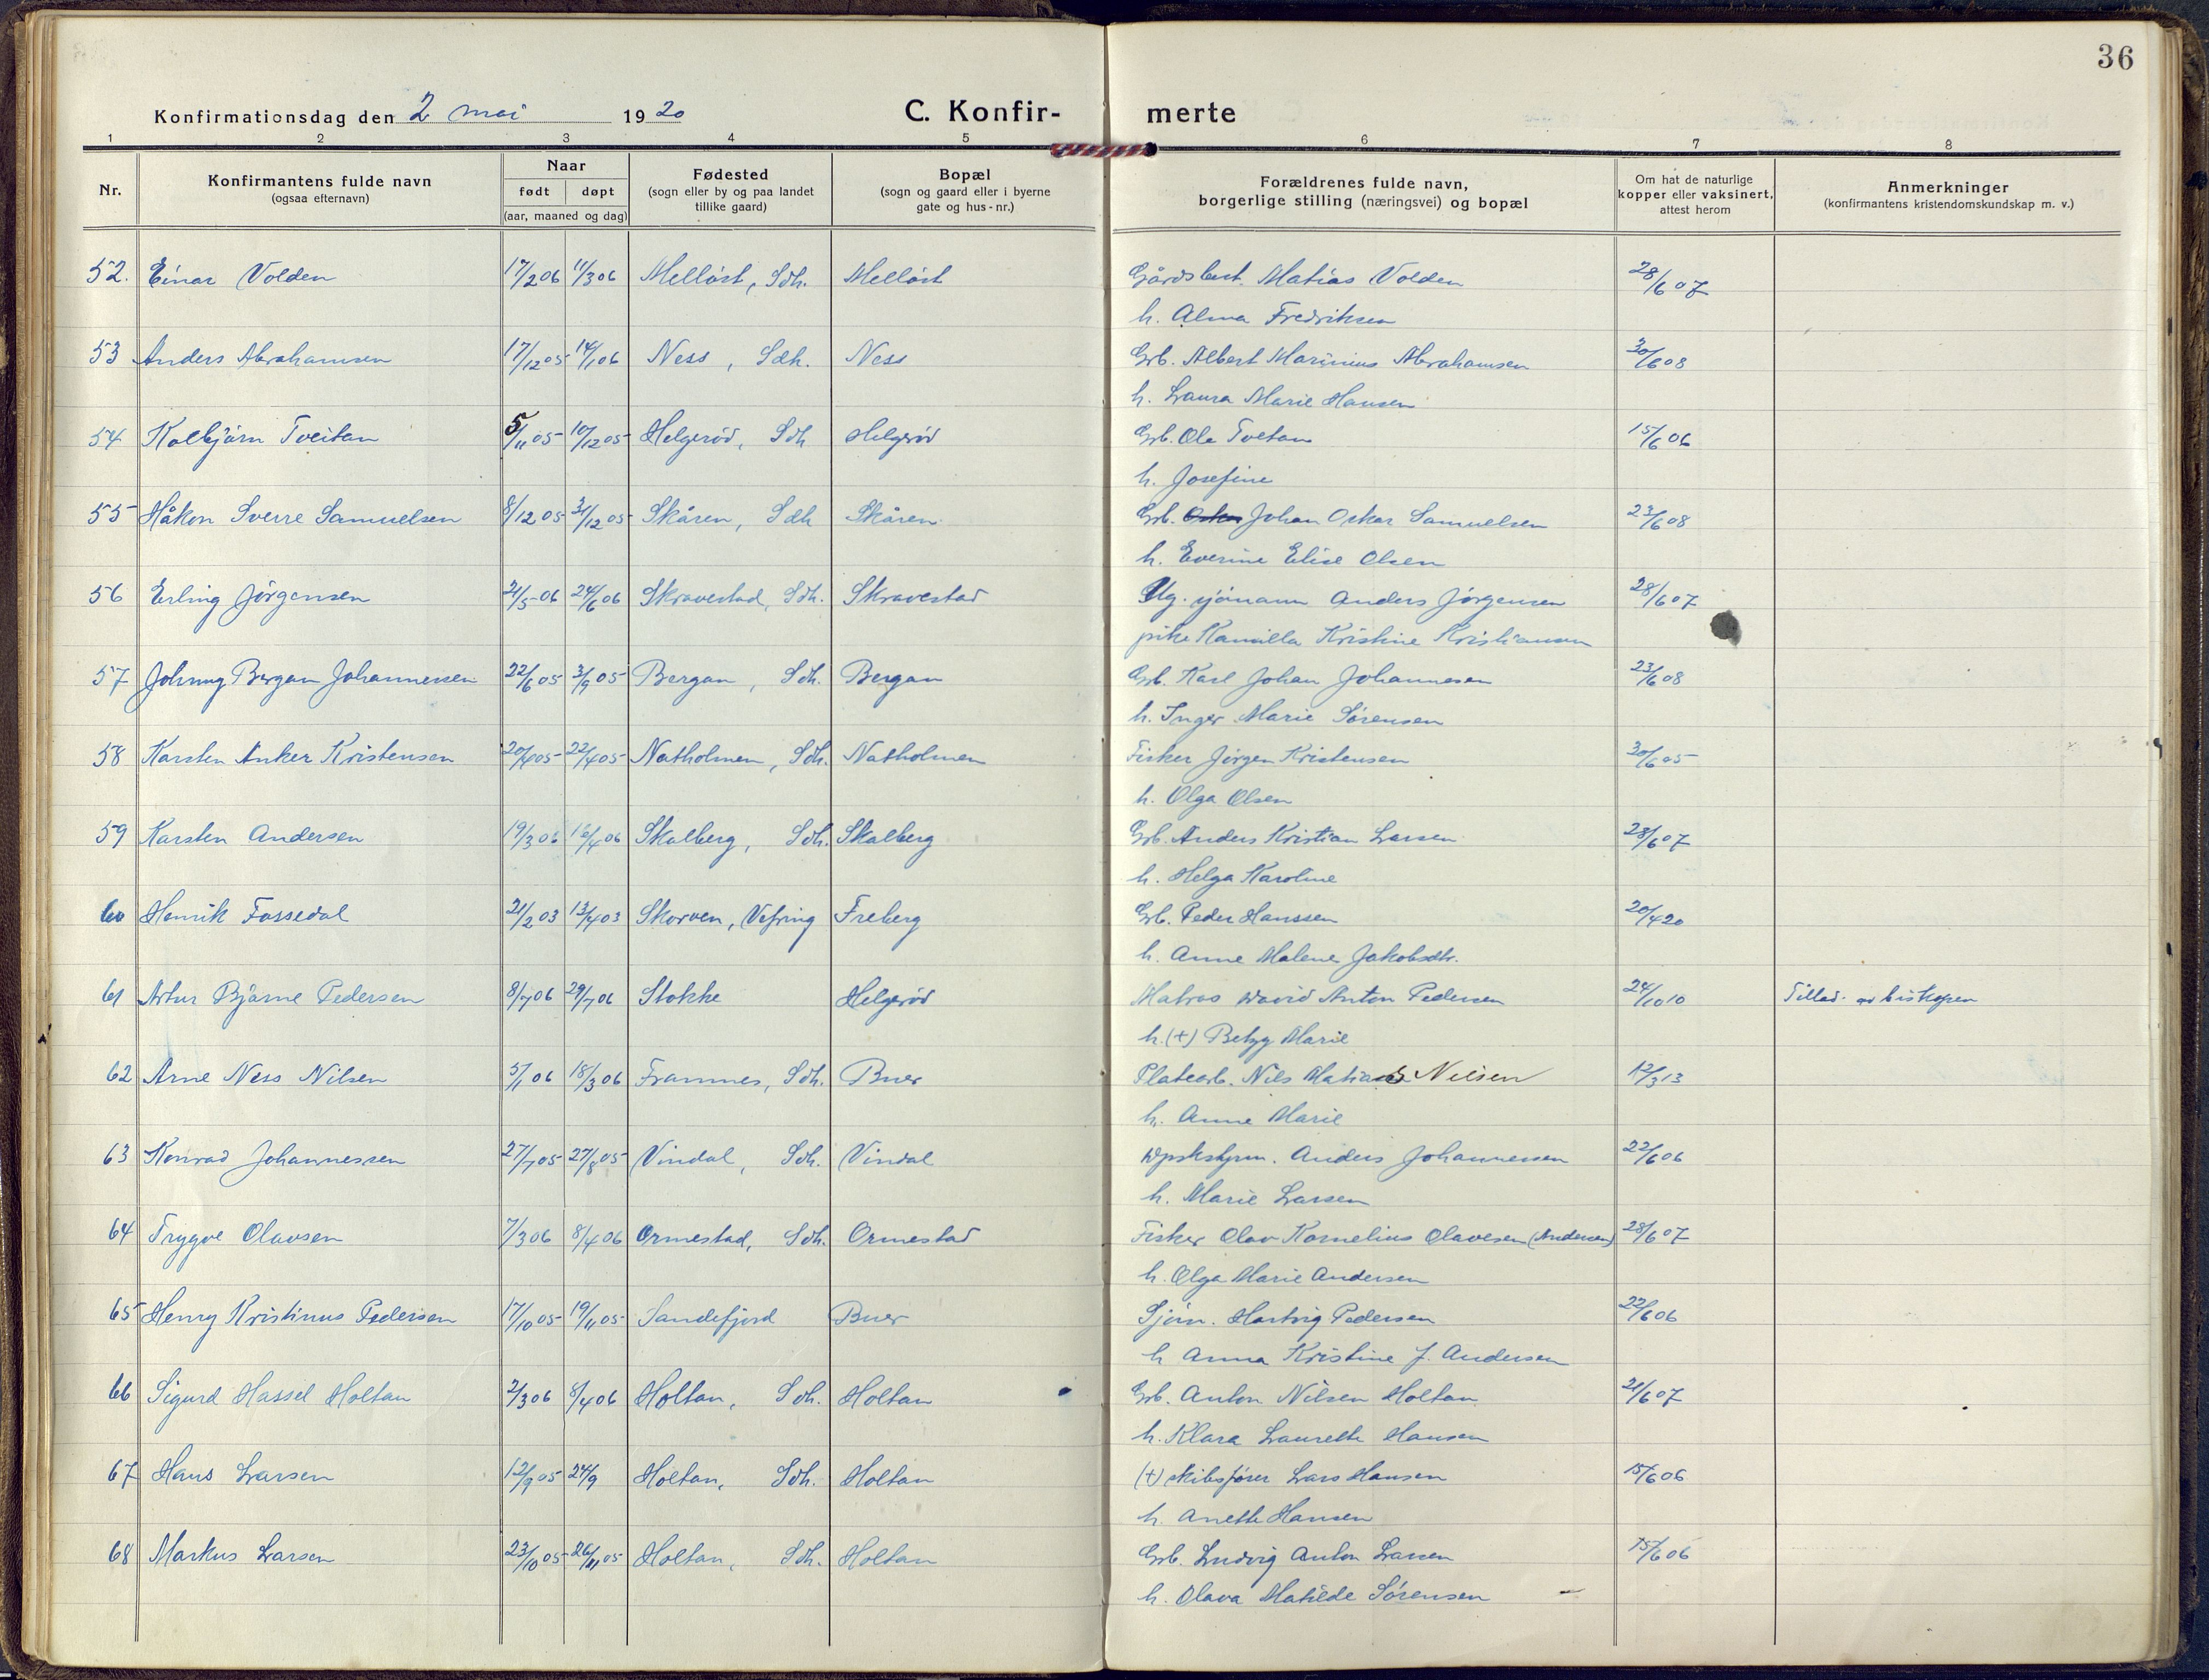 36
Konfirmationsdag den 2 mai 1920
C. Konfir- merte
1 2 3 4 5 6 7 8
Nr.
Konfirmantens fulde navn
(ogsaa efternavn)
Naar
født døpt
(aar, maaned og dag)
Fødested
(sogn eller by og paa landet
tillike gaard)
Bopæl
(sogn og gaard eller i byerne
gate og hus-nr.)
Forældrenes fulde navn,
borgerlige stilling (næringsvei) og bopæl
Om hat de naturlige
kopper eller vaksinert,
attest herom
Anmerkninger
(konfirmantens kristendomskundskap m. v.)
52. Einar Volden 17/2 06 11/3 06 Melløst, Sdh. Melløst Gårdsbest. Matias Volden 28/6 07
h. Alma Fredriksen
53 Anders Abrahamsen 17/12 05 14/1 06 Ness, Sdh. Ness Grb. Albert Marinius Abrahamsen 30/6 08
h. Laura Marie Hansen
54 Kolbjørn Tveitan 5/11 05 10/12 05 Helgerød, Sdh Helgerød Grb. Ole Tvetan 15/6 06
h. Josefine
55 Håkon Sverre Samuelsen 8/12 05 31/12 05 Skåren, Sdh Skåren. Grb. Oskar Johan Oskar Samuelsen 23/6 08
h. Everine Elise Olsen
56 Erling Jørgensen 21/5 06 24/6 06 Skravestad, Sdh. Skravestad Ug. sjømann Anders Jørgensen 28/6 07
pike Kamilla Kristine Kristiansen
57 Johnny Bergan Johannessen 22/6 05 3/9 05 Bergan, Sdh. Bergan Grb. Karl Johan Johannesen 23/6 08
h. Inger Marie Sørensen
58 Karsten Anker Kristensen 20/4 05 22/4 05 Natholmen, Sdh. Natholmen Fisker Jørgen Kristensen 30/6 05
h. Olga Olsen
59 Karsten Andersen 19/3 06 16/4 06 Skalberg, Sdh. Skalberg Grb. Anders Kristian Larsen 28/6 07
h. Helga Karoline
60 Henrik Fossedal 21/2 03 13/4 03 Skorven, Vefring Freberg Grb. Peder Hanssen 20/4 20
h. Anne Malene Jakobsdtr.
61 Artur Bjarne Pedersen 8/7 06 29/7 06 Stokke Helgerød Matros David Anton Pedersen 24/10 10 Tillad. av biskopen
h. (+) Betzy Marie
62 Arne Ness Nilsen 5/1 06 18/3 06 Framnes, Sdh. Buer Platearb. Nils Matias Nilsen 12/3 13
h. Anne Marie
63 Konrad Johannessen 27/7 05 27/8 05 Vindal, Sdh. Vindal Dpskstyrm. Anders Johannessen 22/6 06
h. Marie Larsen
64 Trygve Olavsen 7/3 06 8/4 06 Ormestad, Sdh. Ormestad Fisker Olav Kornelius Olavesen (Andersen) 28/6 07
h. Olga Marie Andersen
65 Henry Kristinus Pedersen 17/10 05 19/11 05 Sandefjord Buer Sjøm. Hartvig Pedersen 22/6 06
h Anna Kristine J. Andersen
66 Sigurd Hassel Holtan 2/3 06 8/4 06 Holtan, Sdh. Holtan Grb. Anton Nilsen Holtan 21/6 07
h. Klara Laurette Hansen
67 Hans Larsen 12/9 05 24/9 Holtan, Sdh. Holtan (+) skibsfører Lars Hansen 15/6 06
h. Anette Hansen
68 Markus Larsen 23/10 05 26/11 05 Holtan, Sdh. Holtan Grb. Ludvig Anton Larsen 15/6 06
h. Olava Matilde Sørensen